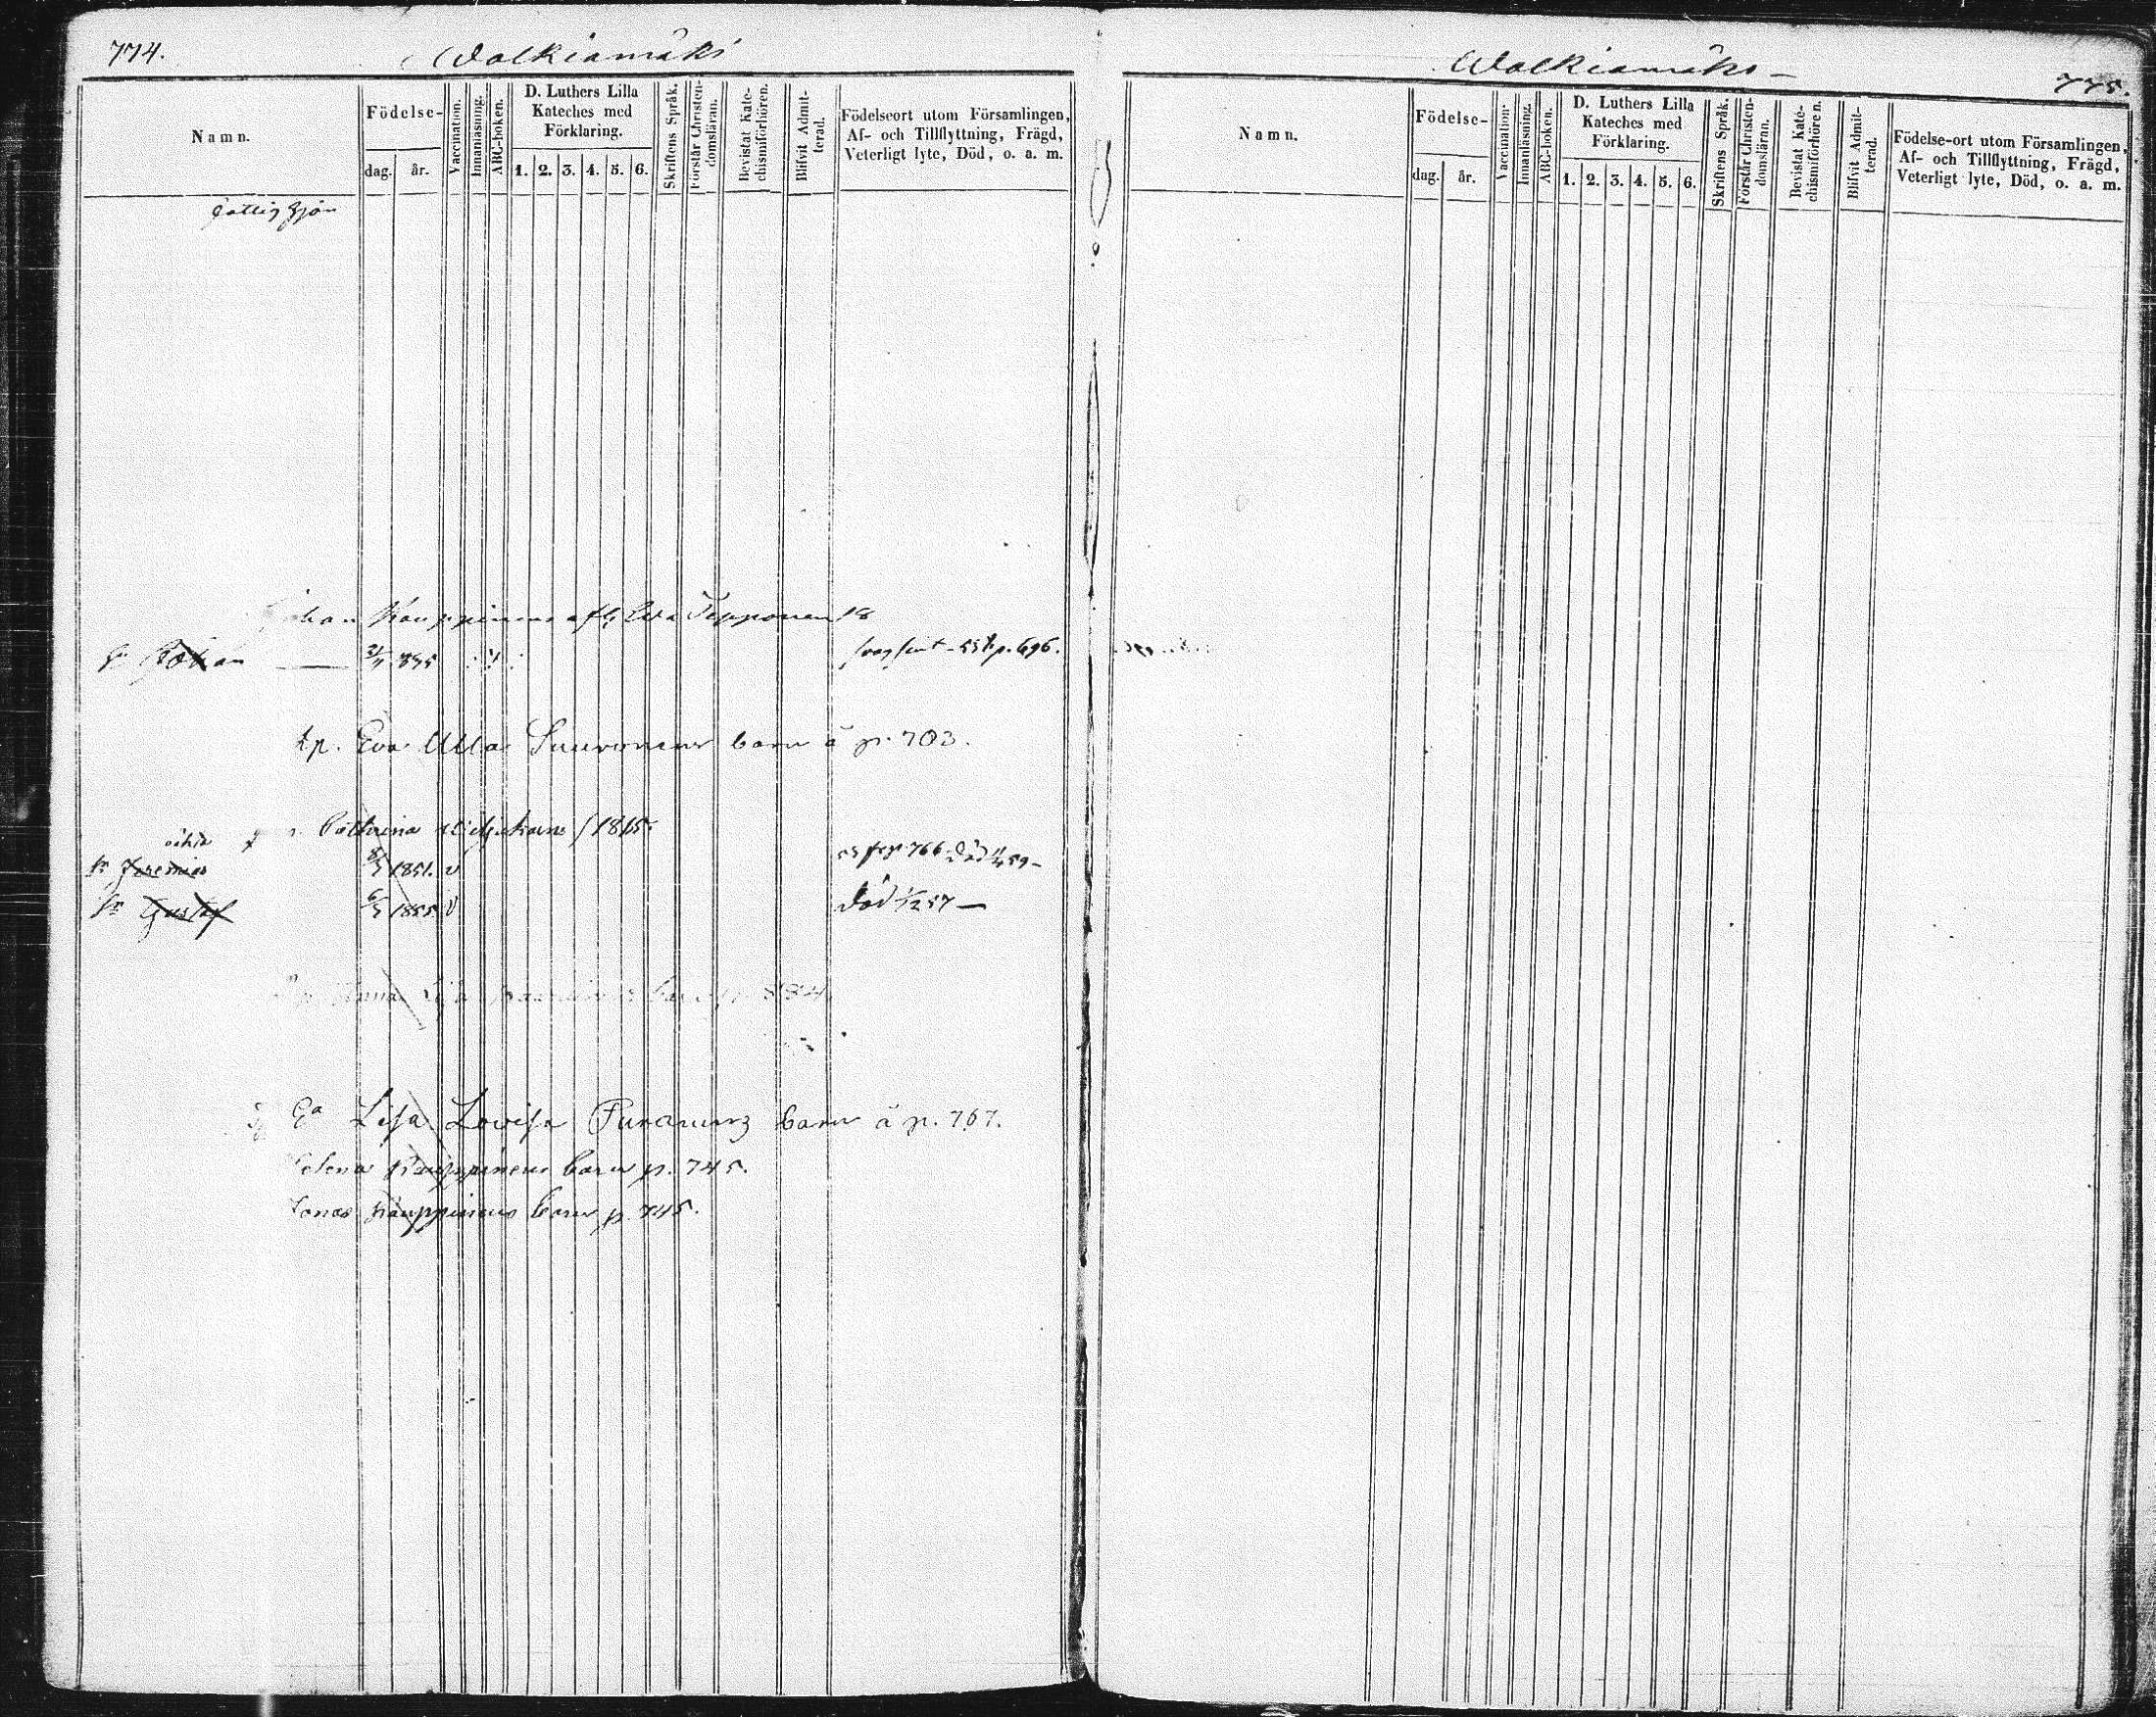 774.
Walkiamäki
Namn.
Födelse-
dag.
år.
Vaccination.
Innanläsning.
ABC-boken.
D. Luthers Lilla
Kateches med
Förklaring.
1. 2. 3. 4. 5. 6.
Skriftens Språk.
Förstår Christen-
domsläran.
Bevistat Kate-
chismiförhören.
Blifvit Admit-
terad.
Födelseort utom Församlingen,
Af- och Tillflyttning, Frägd,
Veterligt lyte, Död, o. a. m.
Johan Kauppinens Eva Tepponen
Johan 855 p. 696.
Eva Ulla Suuronens barn å p. 703.
Cathrina
Jeremias 1851. v 766 Död 59 —
Sn Gustaf 1855 v Död 1/2 57 —
Anna barn p.
Lisa Lovisa Puranens barn å p. 767.
Helena Kauppinens barn p. 745.
Jonas Kauppinens barn p. 745.
Walkiamäki —
775.
Namn.
Födelse-
dag.
år.
Vaccination.
Innanläsning.
ABC-boken.
D. Luthers Lilla
Kateches med
Förklaring.
1. 2. 3. 4. 5. 6.
Skriftens Språk.
Förstår Christen-
domsläran.
Bevistat Kate-
chismiförhören.
Blifvit Admit-
terad.
Födelse-ort utom Församlingen,
Af- och Tillflyttning, Frägd,
Veterligt lyte, Död, o. a. m.